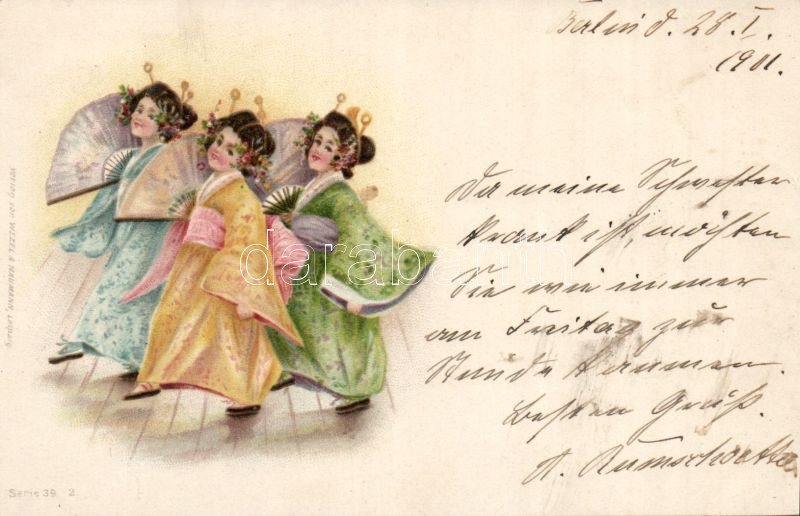 Berlin d. 28. I.
1901.
Da meine Schwester
krank ist, möchten
Sie wie immer
am Freitag zur
Stunde kommen.
Besten Gruß.
A.
Serie 39 2.
WEZEL & NAUMANN, LEIPZIG
darabanth